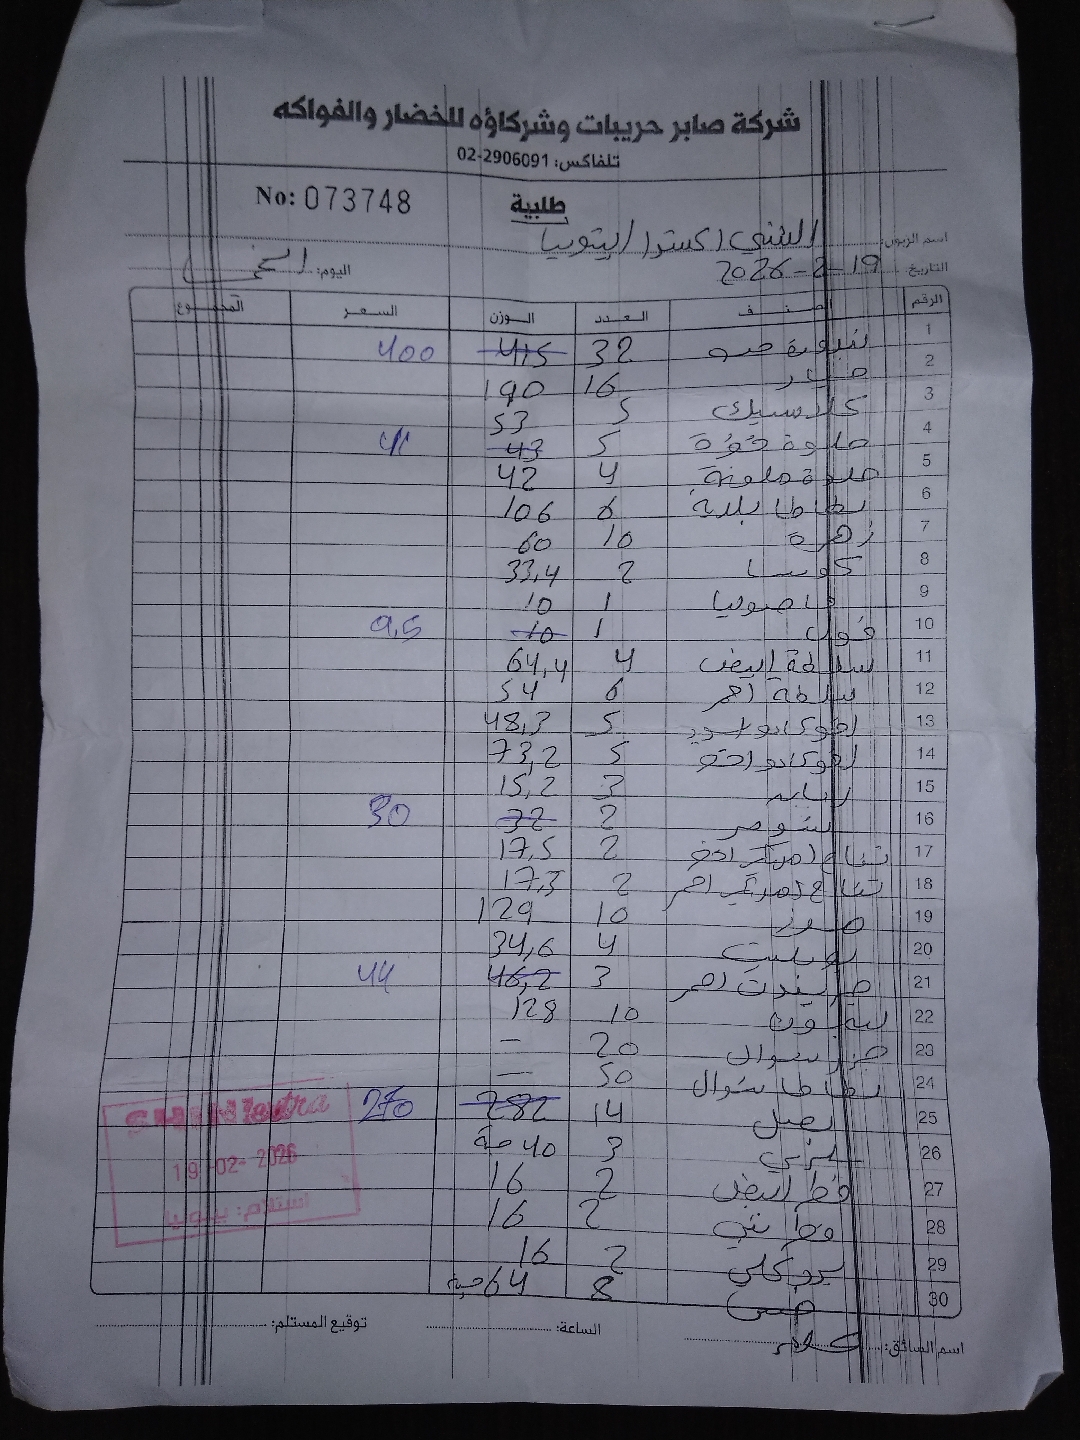 شركة صابر حريبات وشركاؤه للخضار والفواكه
تلفاكس: 02-2906091
No: 073748
طلبية
اسم الزبون: الشني اكسترا
التاريخ 19-2-2026 اليوم: الخميس
الرقم الصنف العدد الوزن السعر المجموع
1 بندورة 32 415 400
2 خيار 16 190
3 كلاسيك 5 53
4 حلوة 5 43 41
5 حلوة ملونة 4 42
6 بطاطا بلدية 6 106
7 زهرة 10 60
8 كوسا 2 33,4
9 فاصوليا 1 10
10 فول 1 10 9,5
11 سلطة ابيض 4 64,4
12 سلطة احمر 6 54
13 افوكادو اسود 5 48,3
14 افوكادو اخضر 5 73,2
15 3 15,2
16 شومر 2 32 30
17 تفاح اخضر 2 17,5
18 تفاح احمر 2 17,3
19 موز 10 129
20 بوملي 4 34,6
21 احمر 3 46,2 44
22 ليمون 10 128
23 جزر شوال 20 –
24 بطاطا شوال 50 –
25 بصل 14 282 270
26 3 40 حبة
27 فطر ابيض 2 16
28 فطر بني 2 16
29 بروكلي 2 16
30 خس 8 64 حبة
اسم السائق: الساعة: توقيع المستلم:
Shini Extra
19-02-2026
استلام: بيتونيا